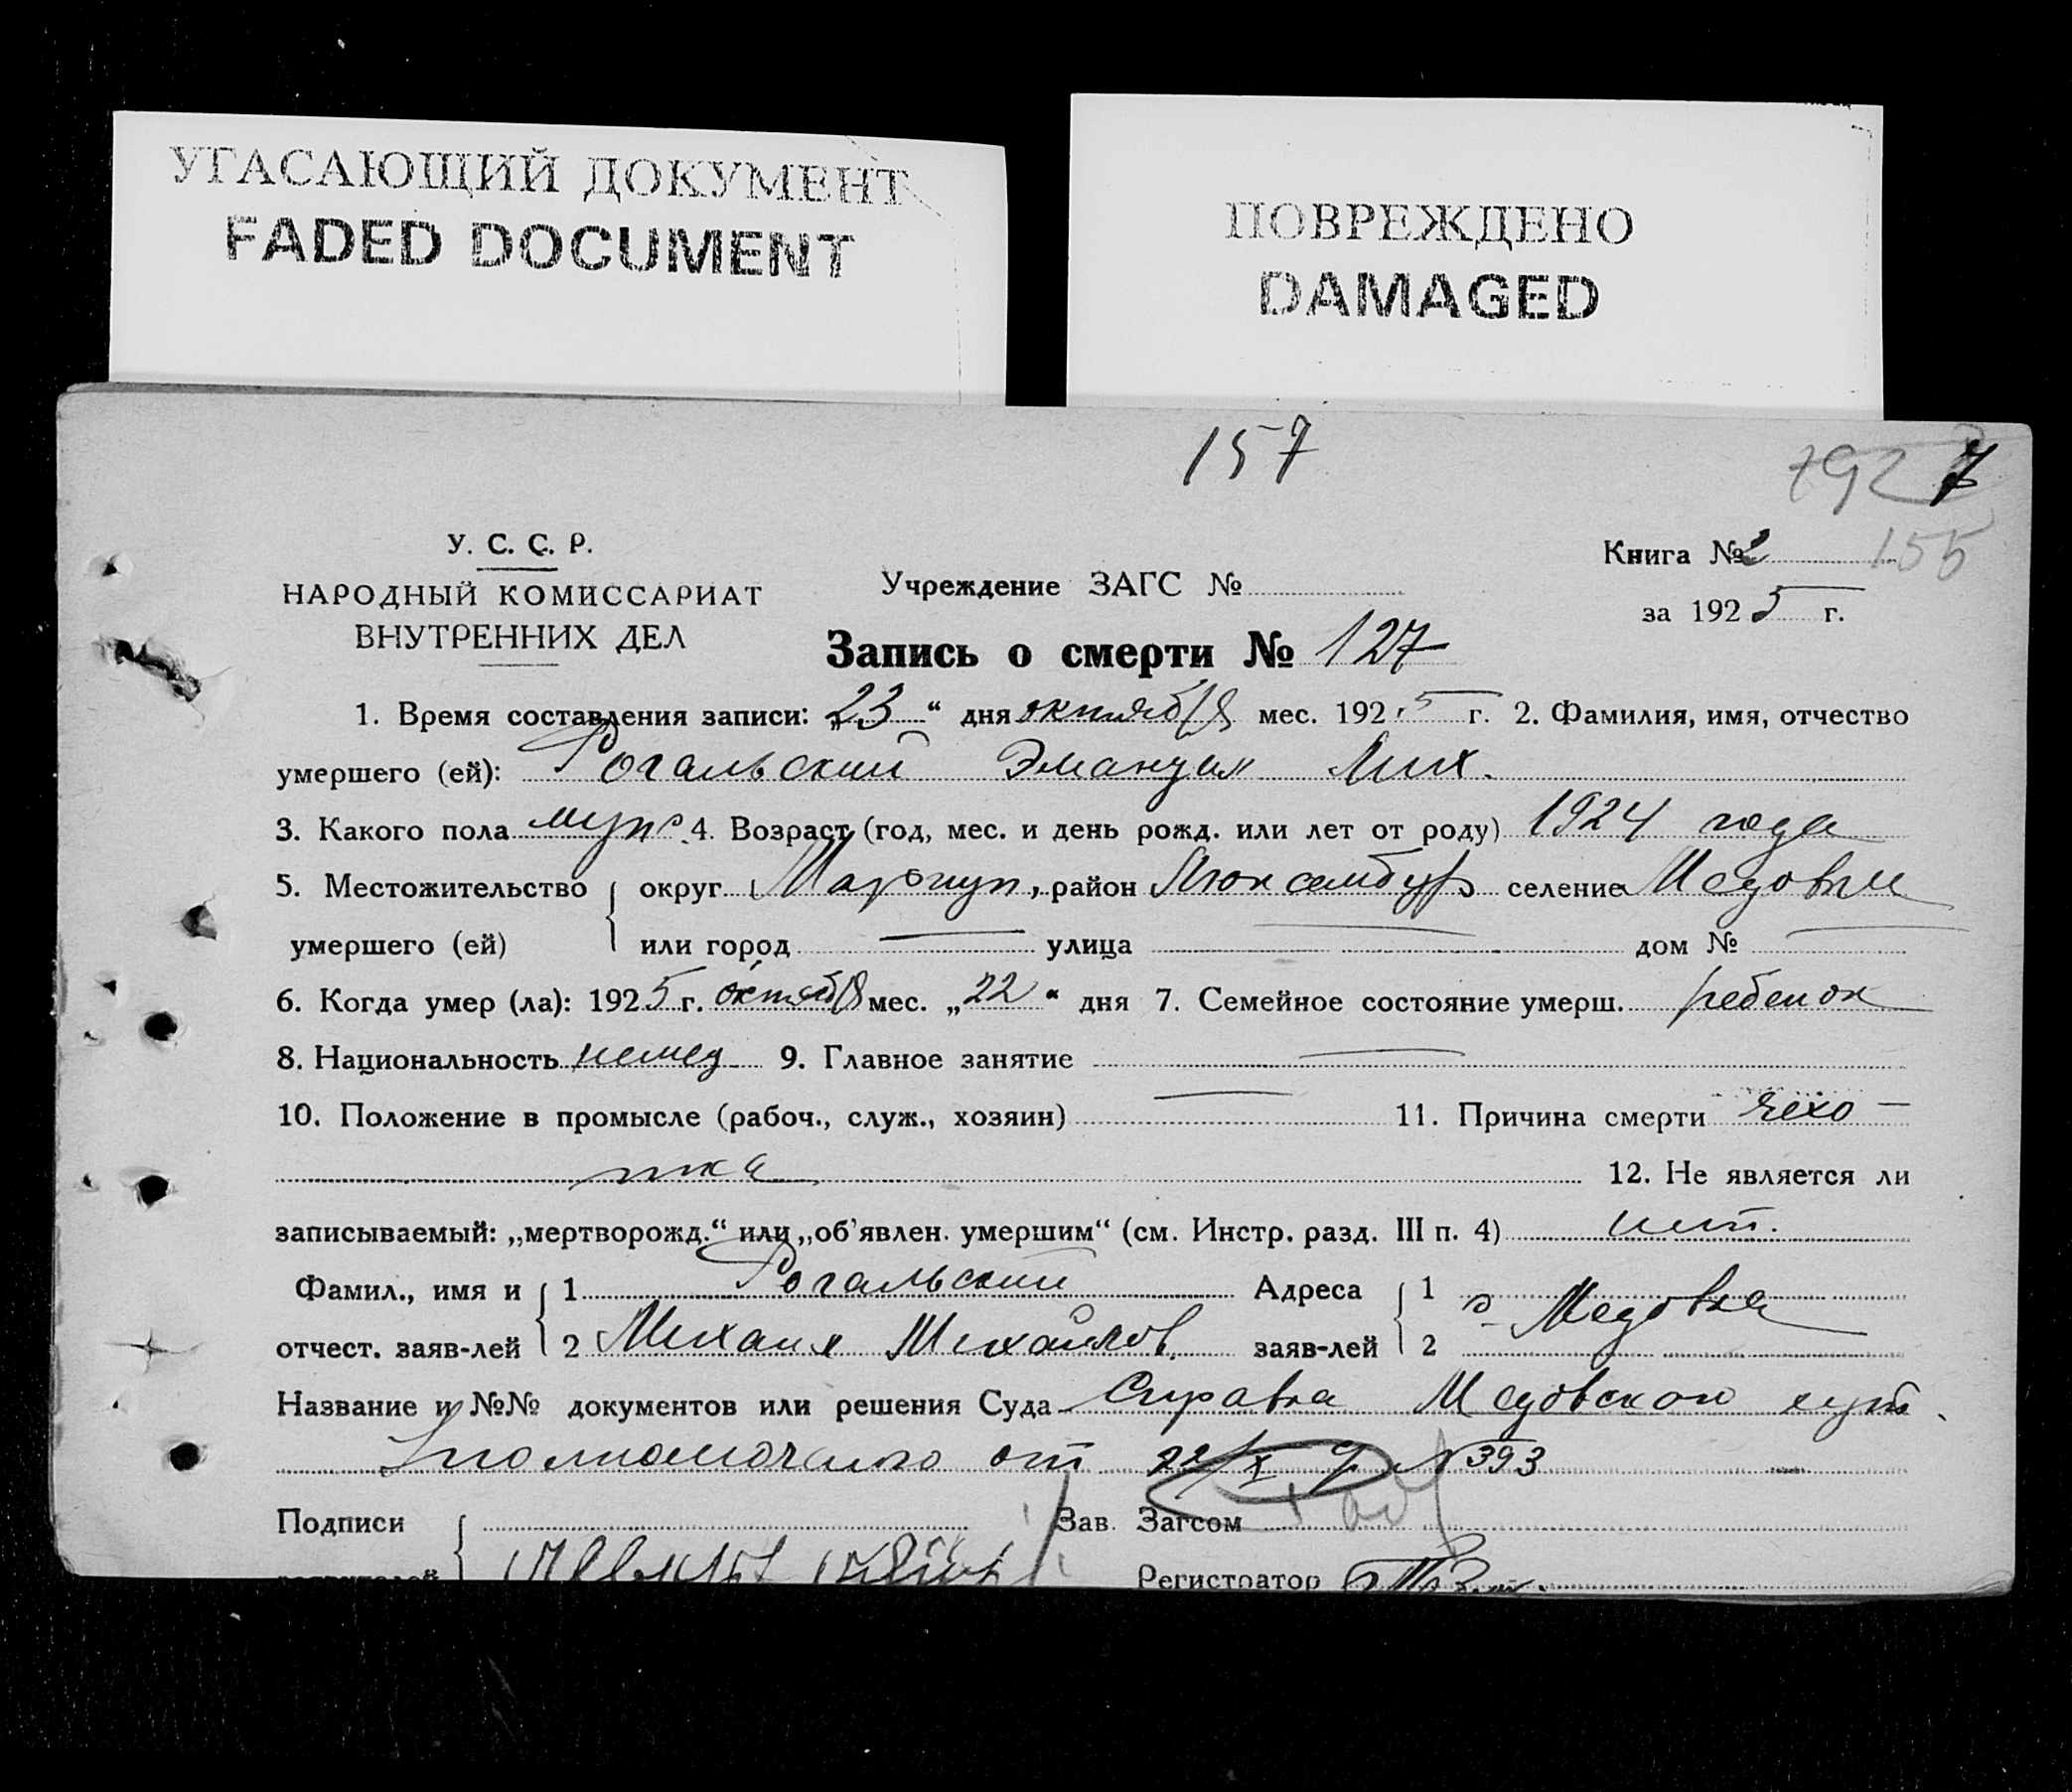 УГАСАЮЩИЙ ДОКУМЕНТ
FADED DOCUMENT
ПОВРЕЖДЕНО
DAMAGED
157
7
155
У. С. С. Р.
НАРОДНЫЙ КОМИССАРИАТ
ВНУТРЕННИХ ДЕЛ
Учреждение ЗАГС №
Книга № 2
за 1925 г.
Запись о смерти № 127
1. Время составления записи: „23“ дня октября мес. 1925 г. 2. Фамилия, имя, отчество
умершего (ей): Рогальский Эмануил Мих.
3. Какого пола муж. 4. Возраст (год, мес. и день рожд. или лет от роду) 1924 года
5. Местожительство округ Мариуп, район Люксембург селение Медовки
умершего (ей) или город — улица — дом № —
6. Когда умер (ла): 1925 г. октября мес. „22“ дня 7. Семейное состояние умерш. ребенок
8. Национальность немец 9. Главное занятие —
10. Положение в промысле (рабоч., служ., хозяин) — 11. Причина смерти чехо-
тка 12. Не является ли
записываемый: „мертворожд.“ или „об'явлен. умершим“ (см. Инстр. разд. III п. 4) нет.
Фамил., имя и 1 Рогальский Адреса 1 с. Медовка
отчест. заяв-лей 2 Михаил Михайлов. заяв-лей 2
Название и №№ документов или решения Суда Справка Медовского хут.
Уполномоченого от 22/X № 393
Подписи Зав. Загсом
заявителей Регистратор